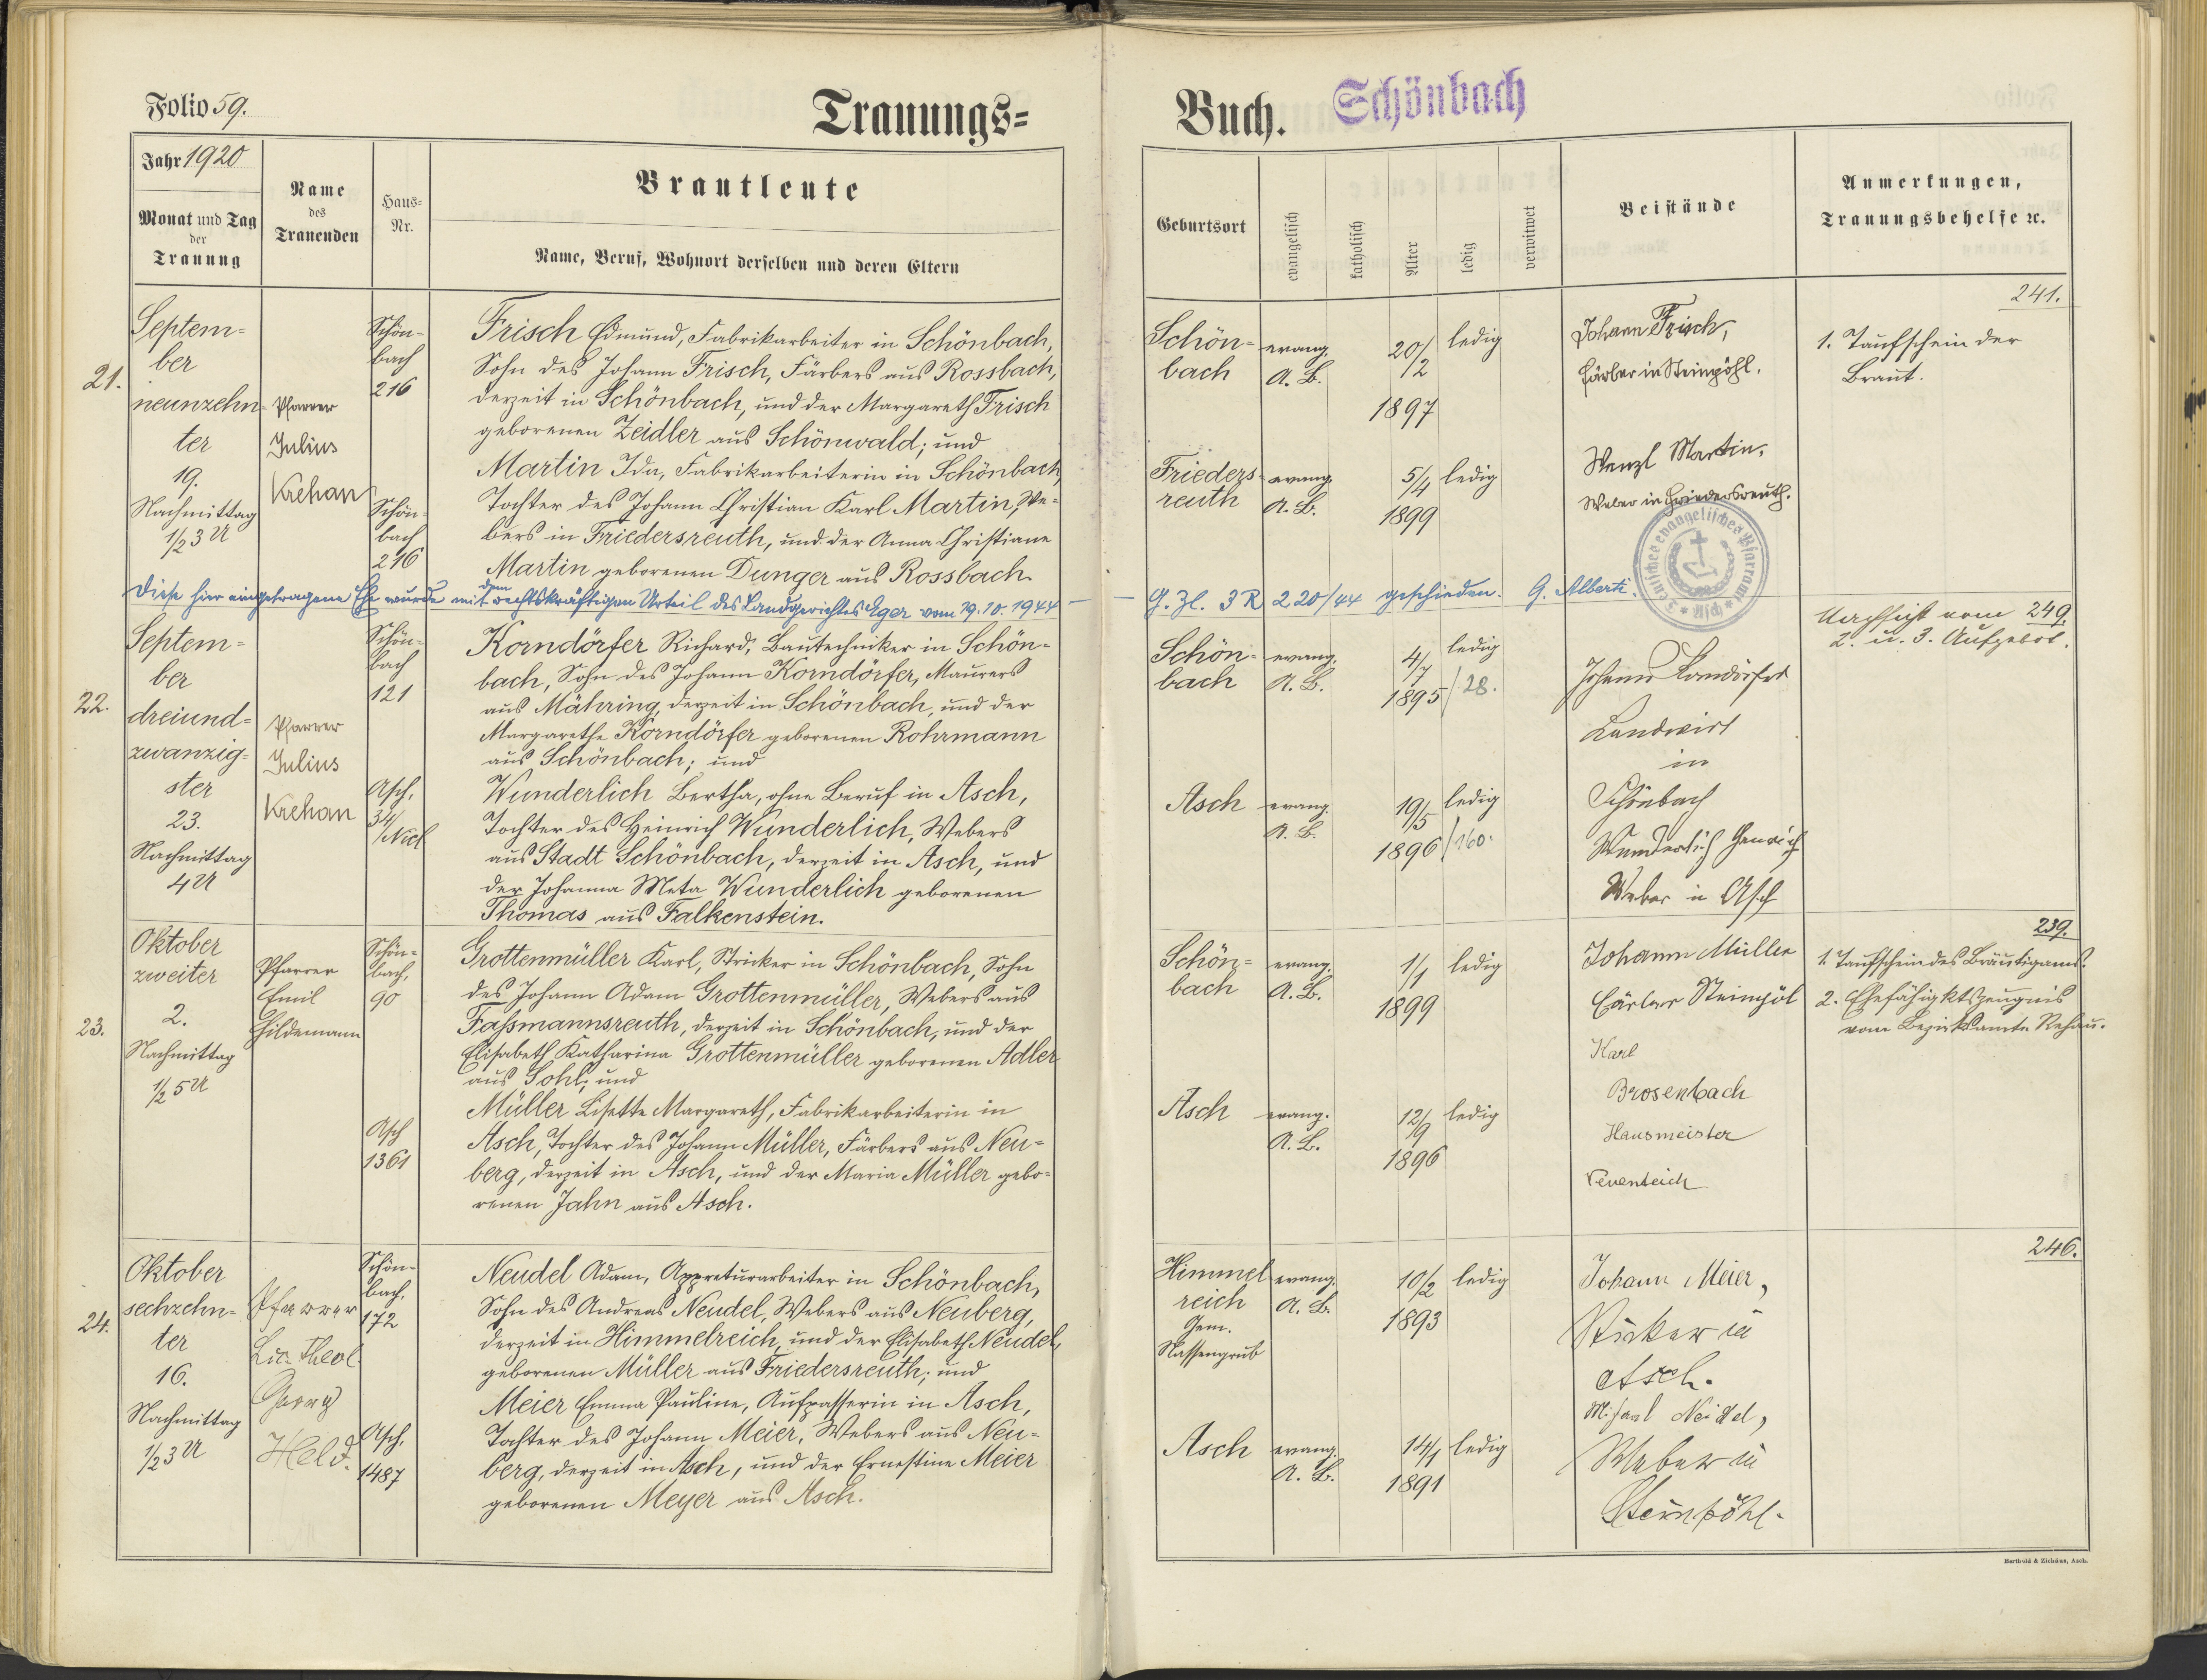 Folio 59.
Trauungs=
Buch.
Schönbach
Jahr 1920
Monat und Tag
der
Trauung
Name
des
Trauenden
Haus=
Nr.
Brautleute
Name, Beruf, Wohnort derselben und deren Eltern
Geburtsort
evangelisch
katholisch
Alter
ledig
verwitwet
Beistände
Anmerkungen,
Trauungsbehelfe ꝛc.
21.
Septem=
ber
neunzehn=
ter
19.
Nachmittag
1/2 3 U
Pfarrer
Julius
Krehan
Schön=
bach
216
Schön=
bach
216
Frisch Edmund, Fabrikarbeiter in Schönbach,
Sohn des Johann Frisch, Färbers aus Rossbach,
derzeit in Schönbach, und der Margareth Frisch
geborenen Zeidler aus Schönwald; und
Martin Ida, Fabrikarbeiterin in Schönbach,
Tochter des Johann Christian Karl Martin, We=
bers in Friedersreuth, und der Anna Christiane
Martin geborenen Dunger aus Rossbach.
Schön=
bach
evang.
A. B.
20/12
1897
ledig
Frieders=
reuth
evang.
A. B.
5/4
1899
ledig
Johann Frisch,
Färber in Steinpöhl.
Wenzl Martin,
Weber in Friedersreuth.
241.
1. Taufschein der
Braut.
Deutsches evangelisches Pfarramt
Asch
Diese hier eingetragene Ehe wurde mit dem rechtskräftigen Urteil des Landgerichtes Eger vom 19.10.1944 — — G. Zl. 3 R 220/44 geschieden. G. Alberti.
22.
Septem=
ber
dreiund=
zwanzig=
ster
23.
Nachmittag
4 U
Pfarrer
Julius
Krehan
Schön=
bach
121
Asch,
34/
Nick
Korndörfer Richard, Bautechniker in Schön=
bach, Sohn des Johann Korndörfer, Maurers
aus Mähring, derzeit in Schönbach, und der
Margarethe Korndörfer geborenen Rohrmann
aus Schönbach; und
Wunderlich Bertha, ohne Beruf in Asch,
Tochter des Heinrich Wunderlich, Webers
aus Stadt Schönbach, derzeit in Asch, und
der Johanna Meta Wunderlich geborenen
Thomas aus Falkenstein.
Schön=
bach
evang.
A. B.
4/7
1895/28.
ledig
Asch
evang.
A. B.
19/5
1896/160.
ledig
Johann Korndörfer
Landwirt
in
Schönbach
Wunderlich Heinrich
Weber in Asch
Nachsicht vom 249.
2. u. 3. Aufgebot.
23.
Oktober
zweiter
2.
Nachmittag
1/2 5 U
Pfarrer
Emil
Hildemann
Schön=
bach,
90
Asch
1361
Grottenmüller Karl, Stricker in Schönbach, Sohn
des Johann Adam Grottenmüller, Webers aus
Faßmannsreuth, derzeit in Schönbach, und der
Elisabeth Katharina Grottenmüller geborenen Adler
aus Sohl; und
Müller Lisette Margareth, Fabrikarbeiterin in
Asch, Tochter des Johann Müller, Färbers aus Neu=
berg, derzeit in Asch, und der Maria Müller gebo=
renen Jahn aus Asch.
Schön=
bach
evang.
A. B.
1/1
1899
ledig
Asch
evang.
A. B.
12/9
1896
ledig
Johann Müller
Färber Steinpöl
Karl
Brosenbach
Hausmeister
Neuenteich
239.
1. Taufschein des Bräutigams.
2. Ehefähigktszeugnis
vom Bezirksamte Rehau.
24.
Oktober
sechzehn=
ter
16.
Nachmittag
1/2 3 U
Pfarrer
Lic. Theol.
Georg
Held.
Schön=
bach,
172
Asch,
1487
Neudel Adam, Appreturarbeiter in Schönbach,
Sohn des Andreas Neudel, Webers aus Neuberg,
derzeit in Himmelreich, und der Elisabeth Neudel,
geborenen Müller aus Friedersreuth; und
Meier Emma Pauline, Aufpasserin in Asch,
Tochter des Johann Meier, Webers aus Neu=
berg, derzeit in Asch, und der Ernestine Meier
geborenen Meyer aus Asch.
Himmel
reich
Gem.
Nassengrub
evang.
A. B.
10/2
1893
ledig
Asch
evang.
A. B.
14/1
1891
ledig
Johann Meier,
Stricker in
Asch.
Michael Neidel,
Weber in
Steinpöhl.
246.
Berthold & Zichäus, Asch.